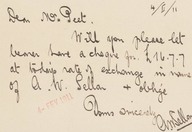 4/5/11
Dear Mr. Peet.
Will you please let
bearer have a cheque for £16-7-7
at today's rate of exchange in name
of A. W. Sellar & oblige
Yours sincerely